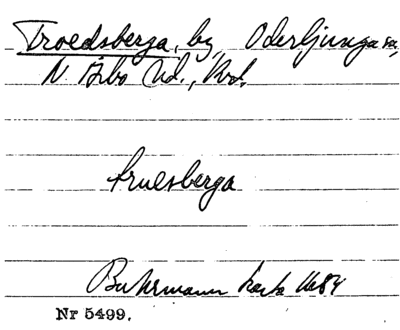 Troedsberga, by, Oderljunga sn,
N. Åsbo hd., Krd.
truesberga
Buhrmann karta 1684
Nr 5499.